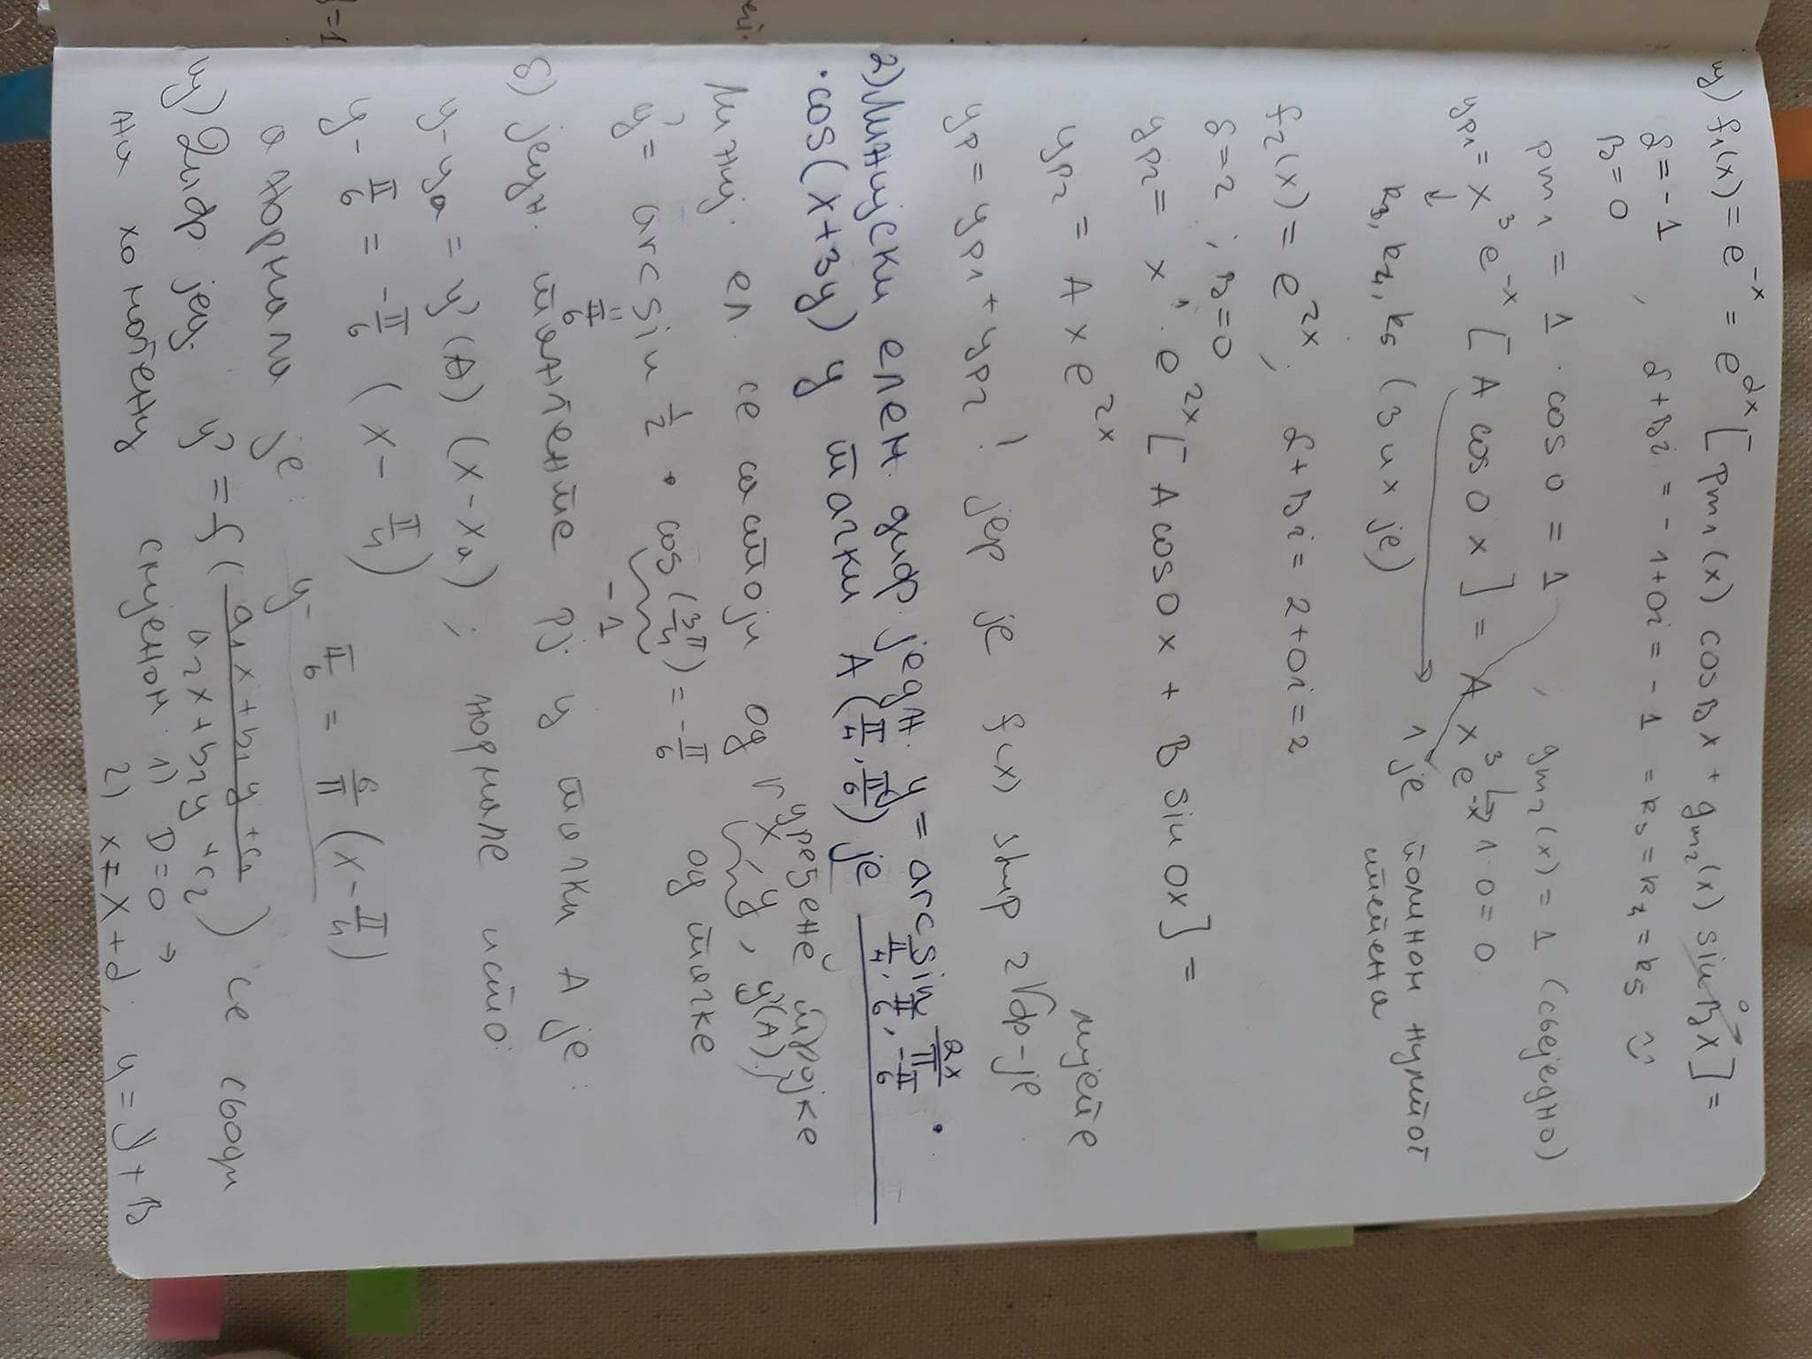 ш) f₁(x) = e⁻ˣ = e^{αx} [Pm₁(x) cosβx + qm₂(x) sinβx] =
α = -1, α+βi = -1+0i = -1 = k₃ = k₄ = k₅
β = 0
Pm₁ = 1 · cos0 = 1, qm₂(x) = 1 (свеједно)
yp₁ = x³ e⁻ˣ [A cos0x] = A x³ e⁻ˣ → 1·0=0
k₃, k₄, k₅ (3 их је) 1 је полином нултог
степена
f₂(x) = e²ˣ; α+βi = 2+0i = 2
α=2; β=0
yp₂ = x¹ · e²ˣ [A cos0x + B sin0x] =
yp₂ = A x e²ˣ
yp = yp₁ + yp₂! јер је f(x) збир 2 ф-је
2) Линијски елем. диф. једн. y' = arcsin 2x/π ·
· cos(x+3y) у тачки A(π/4, π/6) је π/4, π/6, -π/6
Линиј. ел. се састоји од уређене тројке
x, y, y'(A)
y' = arcsin 1/2 · cos(3π/4) = -π/6 од тачке
π/6 -1
б) једн. тангенте рј у тачки A је:
y-ya = y'(A) · (x-xa); нормале исто:
y - π/6 = -π/6 (x - π/4)
а нормали је: y - π/6 = 6/π (x - π/4)
ц) Диф јед. y' = f(a₁x+b₁y+c₁ / a₂x+b₂y+c₂) се своди
на хомогену смјеном 1) D=0 →
2) x = X+α, y = Y+β